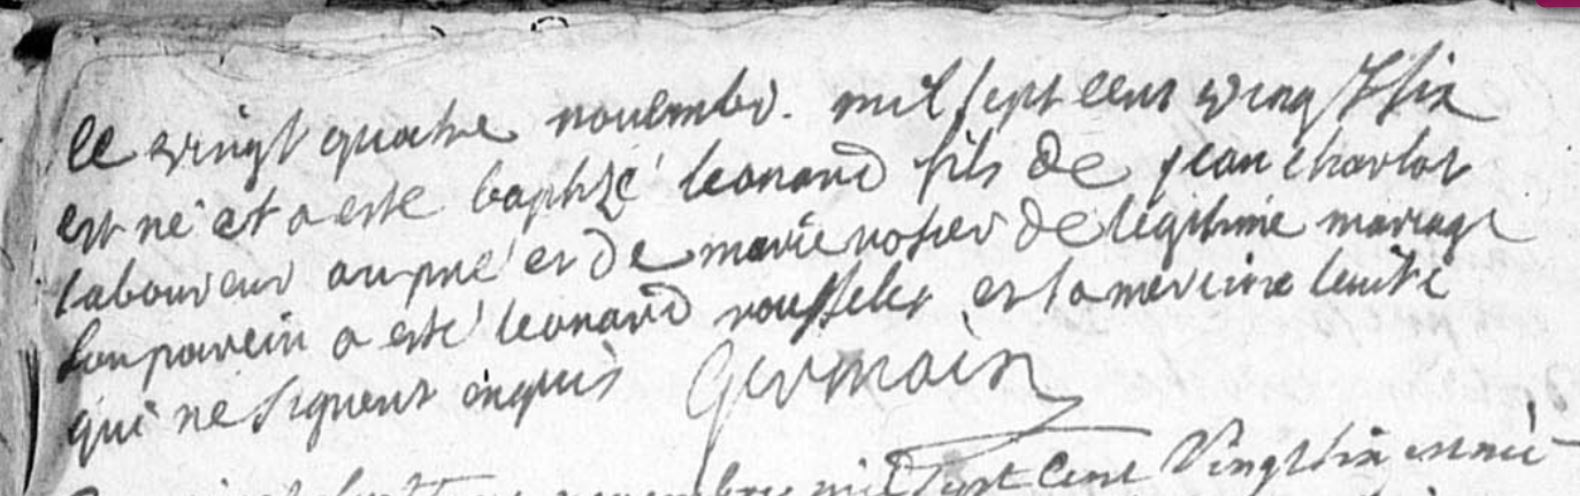 le vingt quatre novembre. mil sept cent vingt six
est né et a esté baptizé leonard fils de jean charlot
laboureur au pré et de marie rosier de legitime mariage
son parein a esté leonard rousselet et la mereine
qui ne signent enquis Germain
novembre mil sept cent vingt six est né